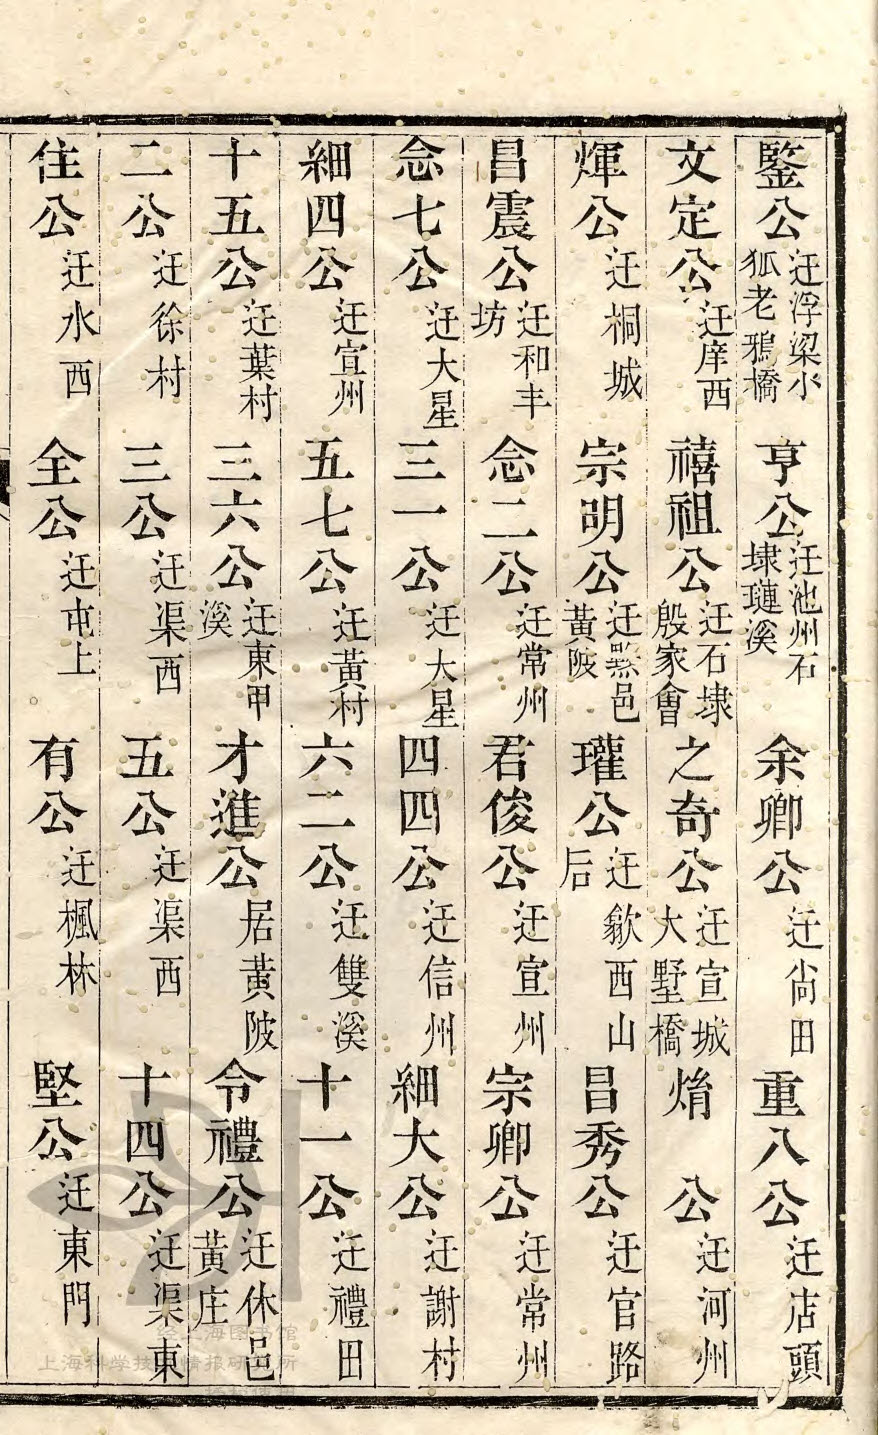 鍳公迁浮梁小狐老鴉橋 亨公迁池州石埭璉溪 余卿公迁尚田 重八公迁店頭
文定公迁庠西 禧祖公迁石埭殷家會 之奇公迁宣城大墅橋 焴公迁河州
煇公迁桐城 宗明公迁黟邑黃陂 瓘公迁歙西山后 昌秀公迁官路
昌震公迁和丰坊 念二公迁常州 君俊公迁宣州 宗卿公迁常州
念七公迁大星 三一公迁大星 四四公迁信州 細大公迁謝村
細四公迁宣州 五七公迁黃村 六二公迁雙溪 十一公迁禮田
十五公迁葉村 三六公迁東甲溪 才進公居黃陂 令禮公迁休邑黃庄
二公迁徐村 三公迁渠西 五公迁渠西 十四公迁渠東
住公迁水西 全公迁屯上 有公迁楓林 堅公迁東門
上海科学技术情报研究所